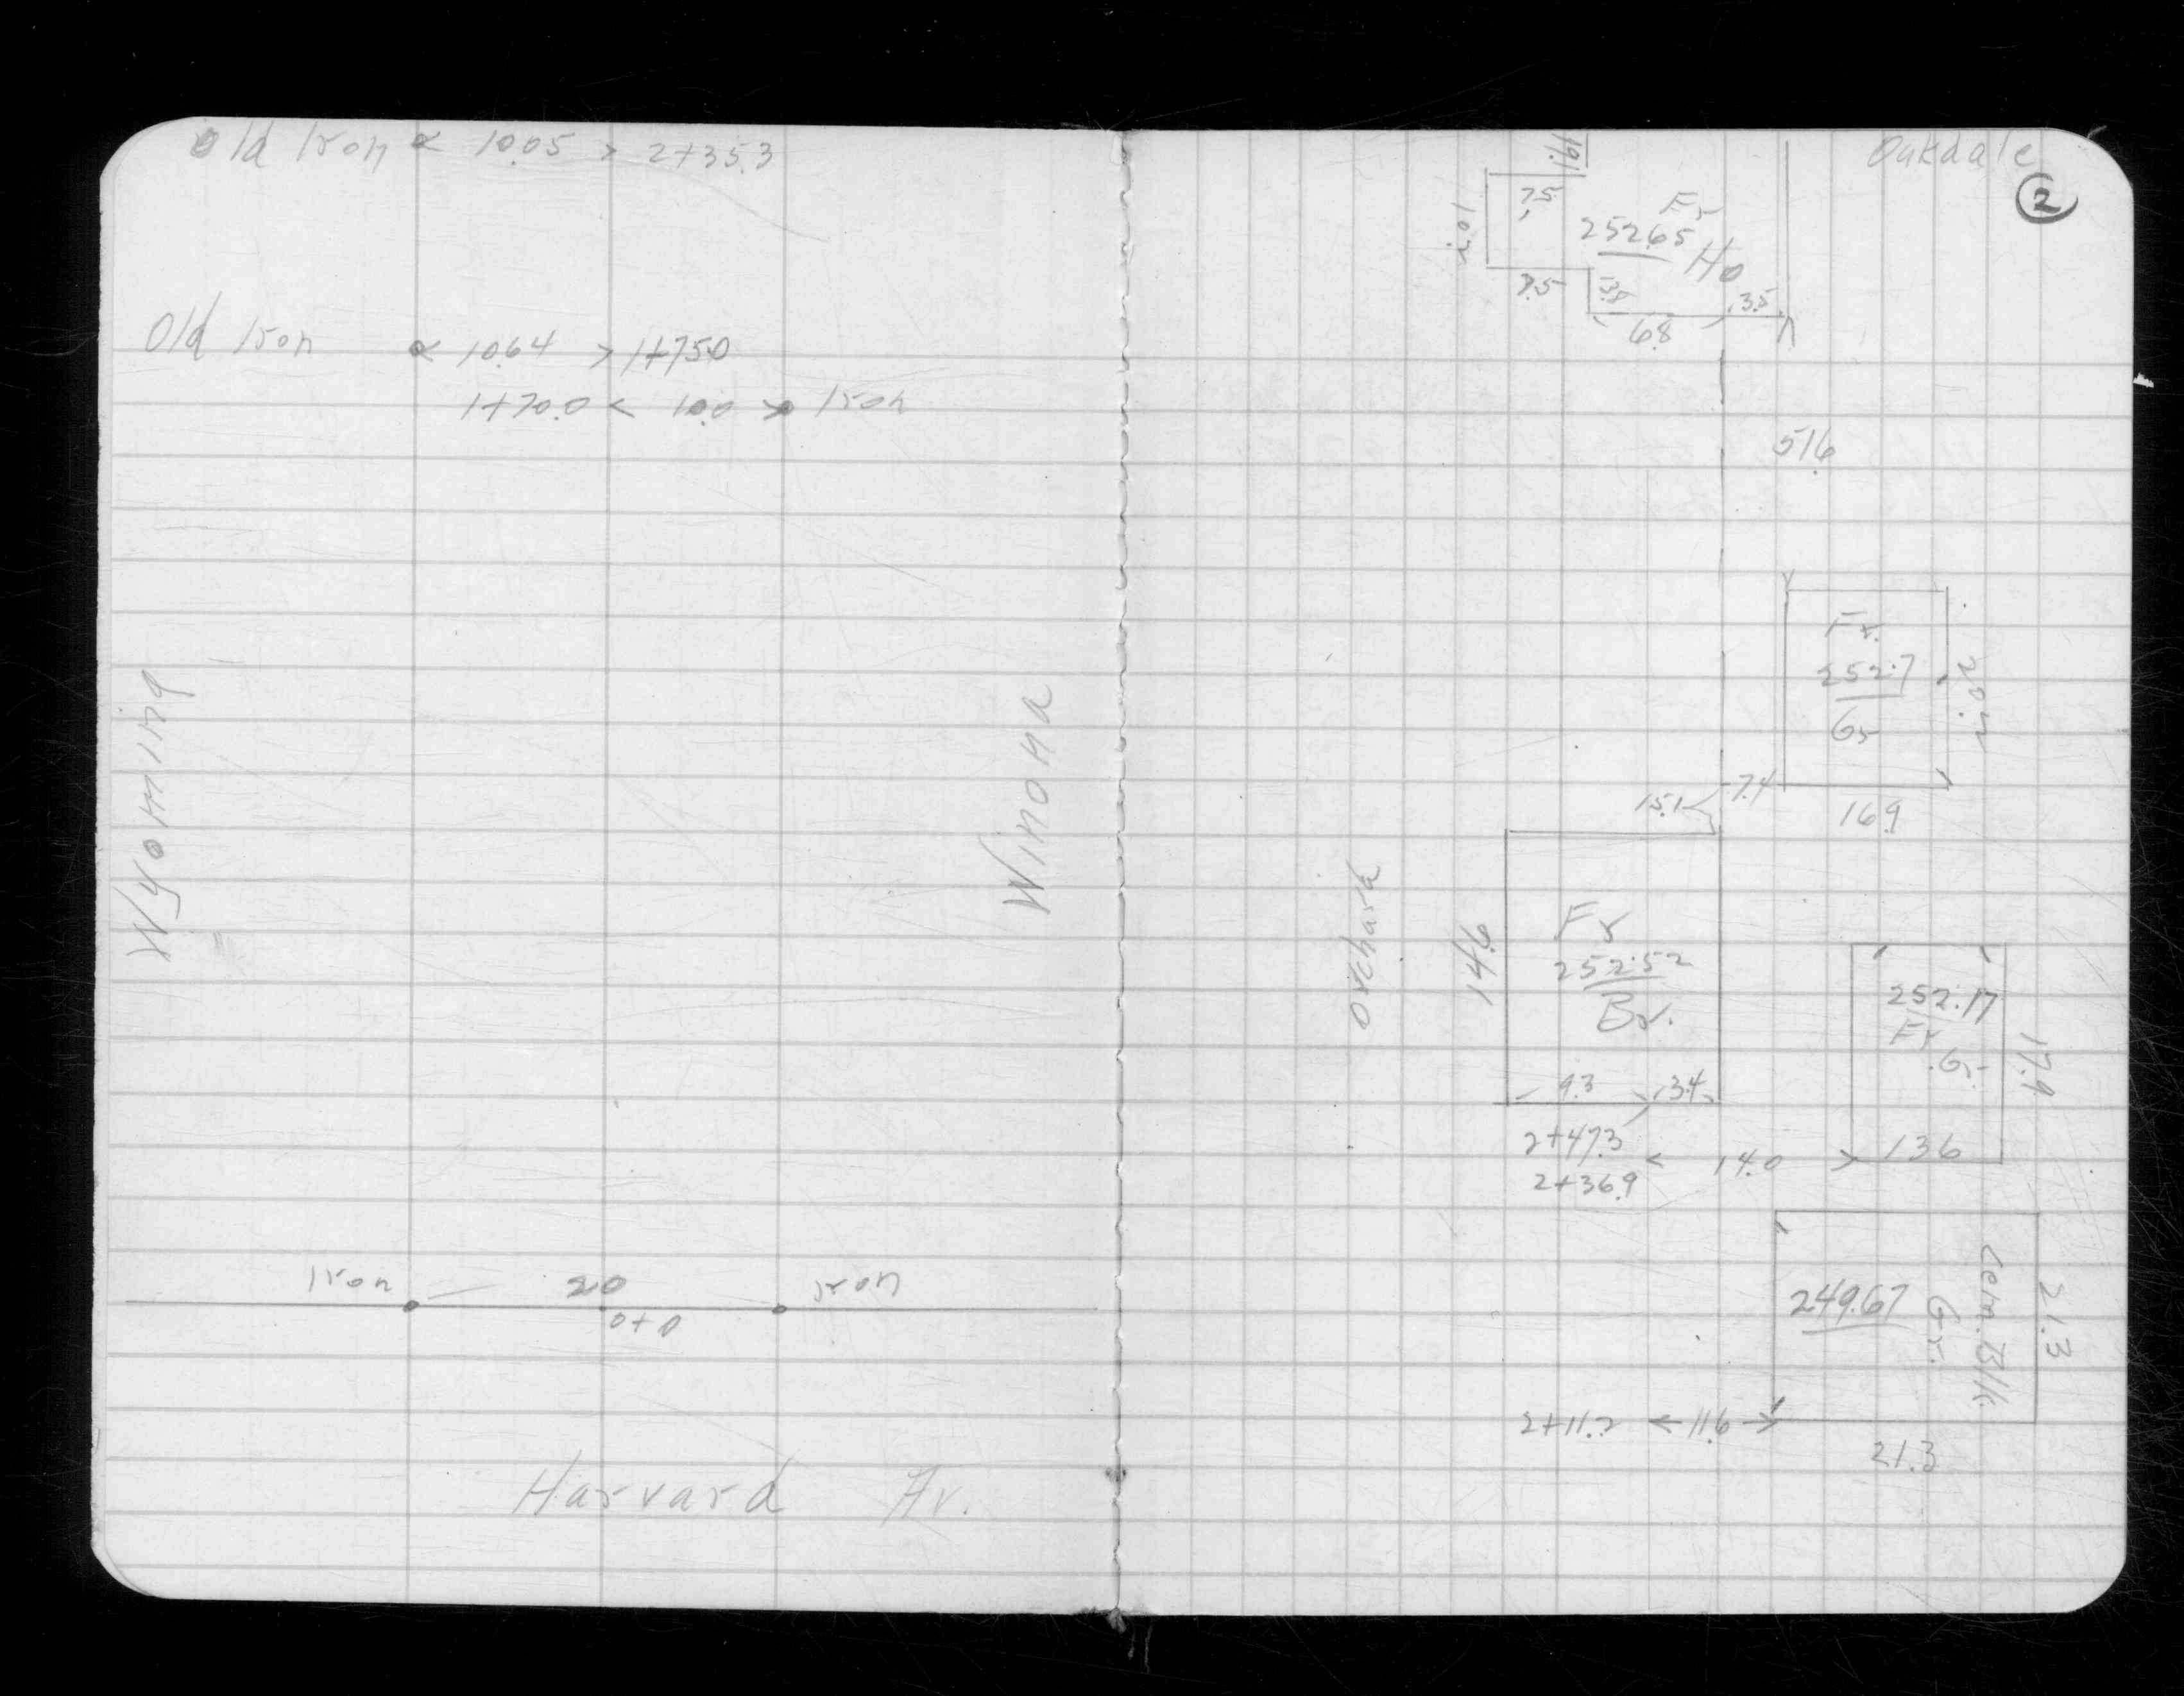 Old Iron 10.05 > 2+35.3
Old Iron 10.64 > 1+75.0
1+70.0 < 10.0 > Iron
Wyoming
Winona
Iron 20 Iron
0+0
Harvard Av.
Oakdale
2
19.1
7.5
Fr
252.65
Ho
7.5
3.8
3.5
6.8
51.6
Fr.
252.7
Gr
16.9
7.4
15.1
orchard
14.6
Fr
252.52
Br.
9.3 3.4
252.17
Fr
Gr.
17.9
2+47.3
< 14.0 > 13.6
2+36.9
249.67
Cem. Blk
Gr.
21.3
2+11.2 < 11.6 >
21.3